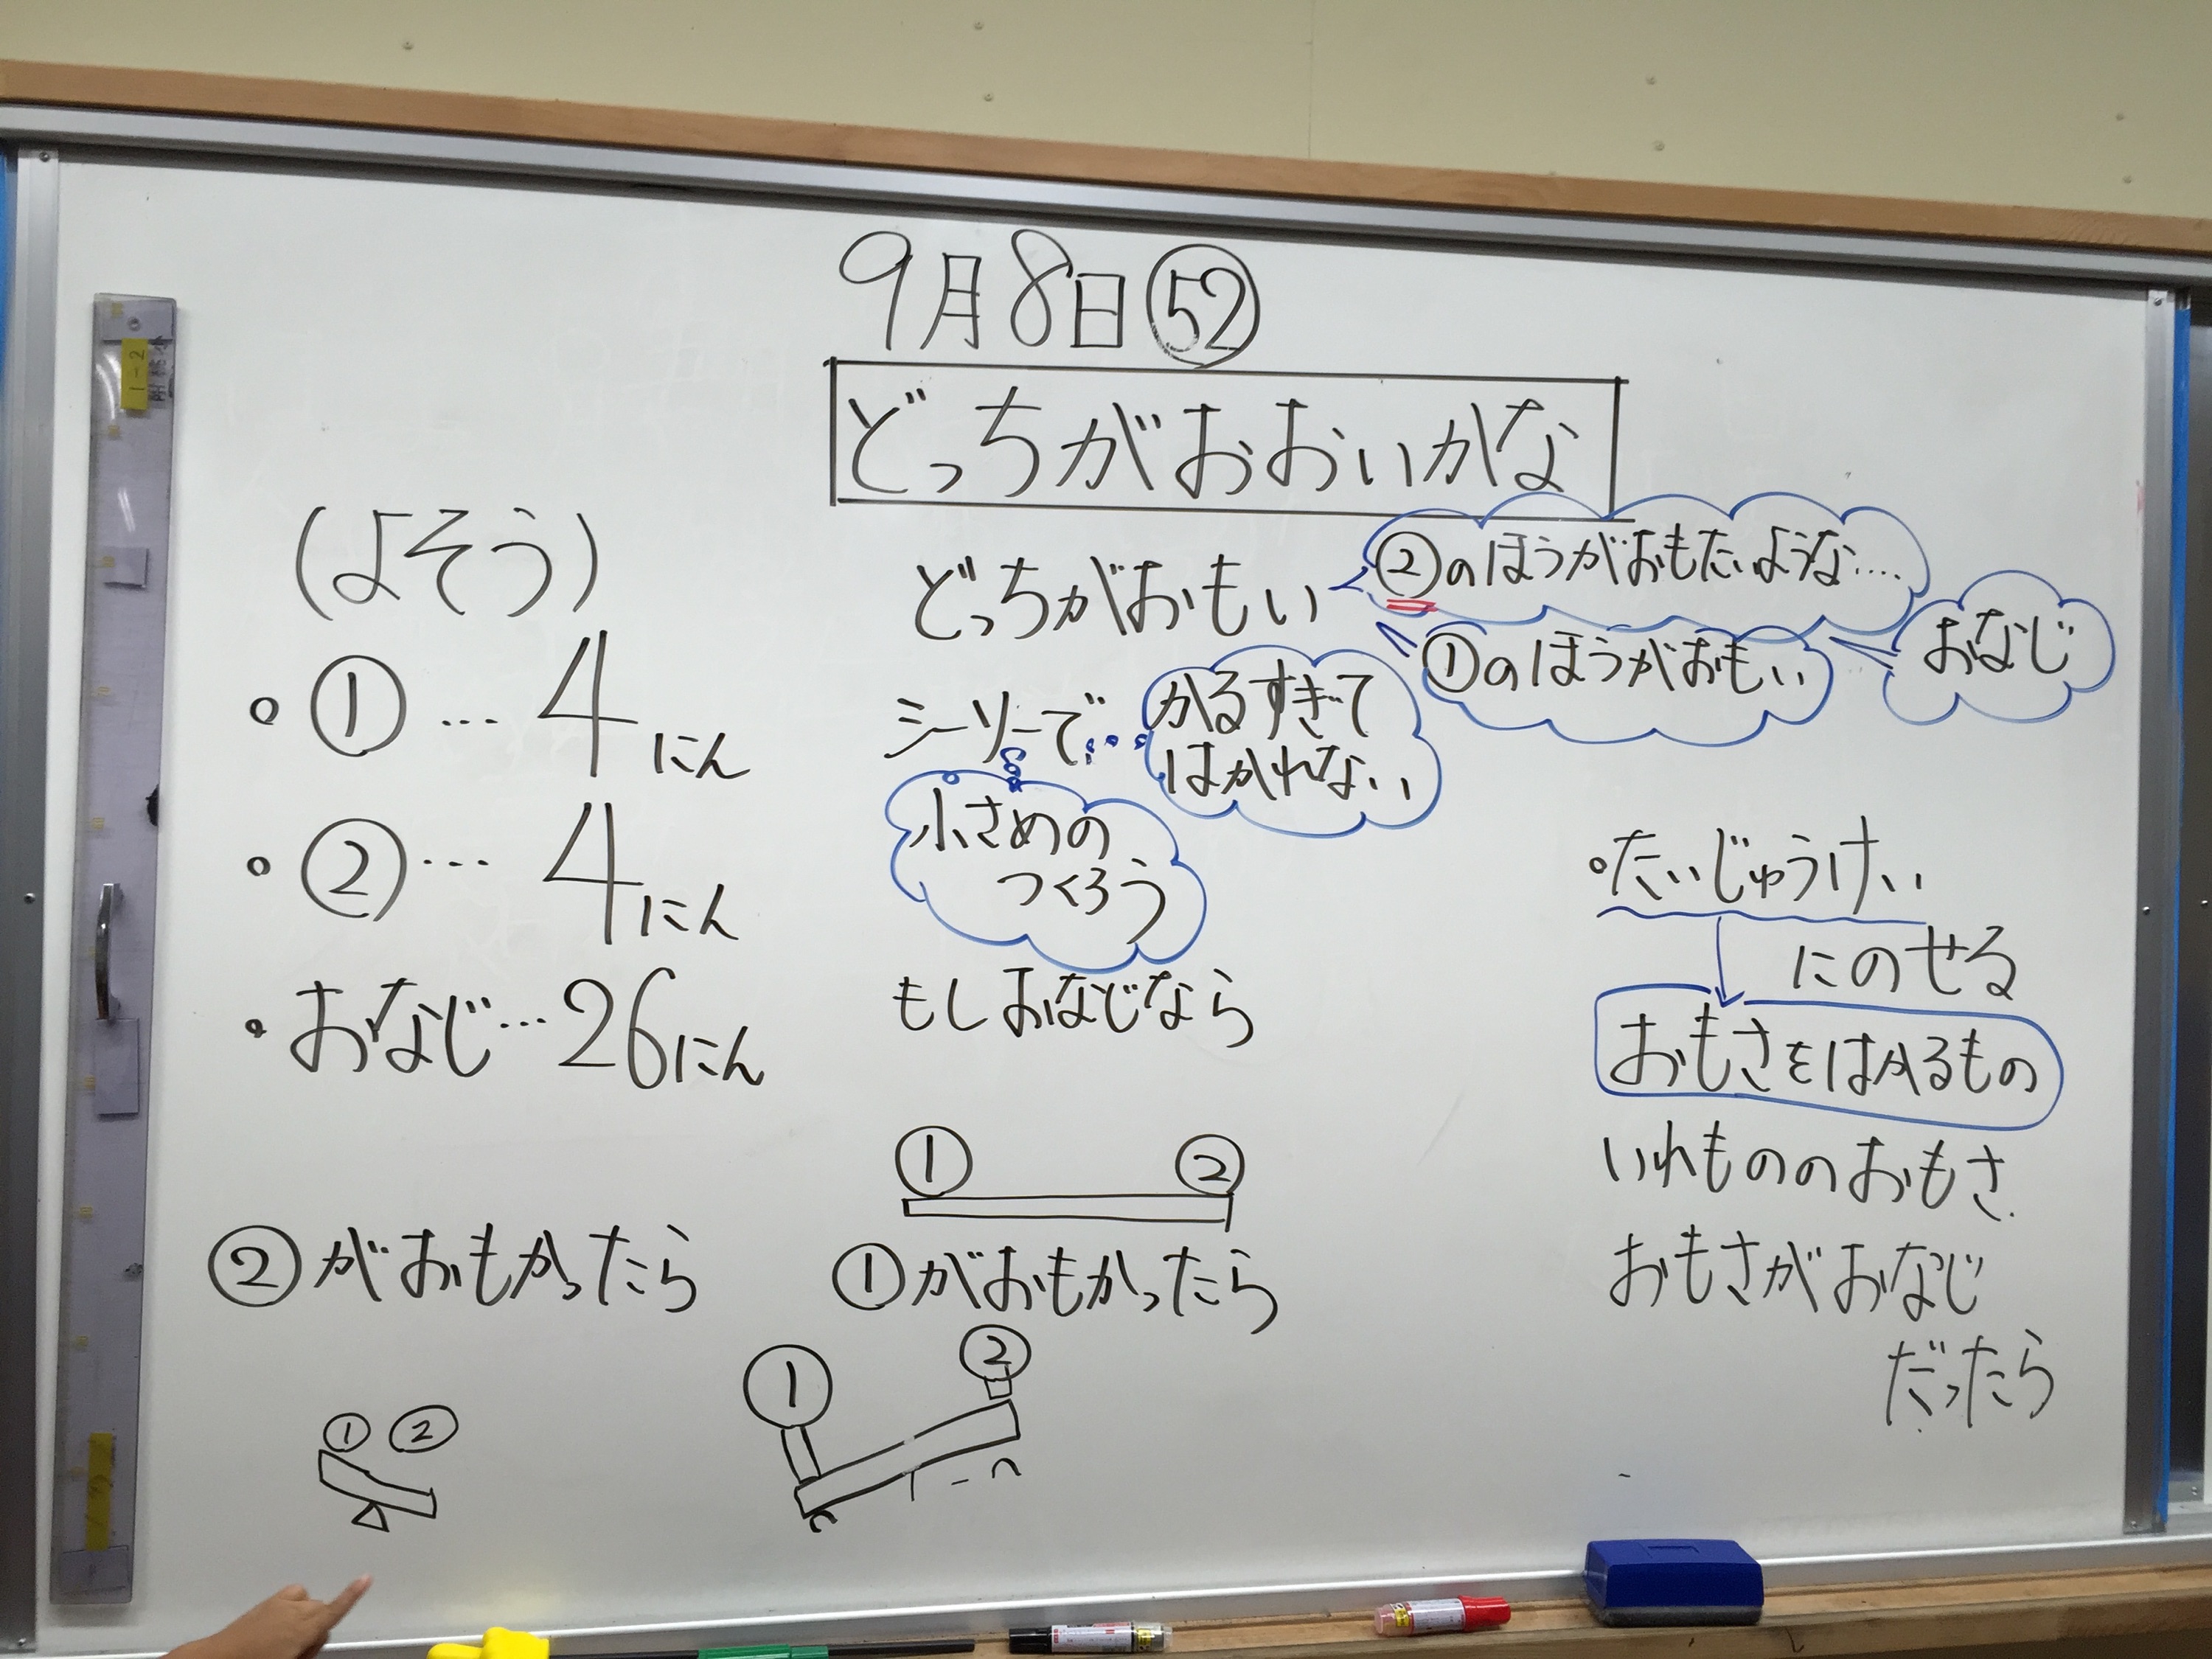 9月8日 52
どっちがおおいかな
(よそう)
• ① … 4にん
• ② … 4にん
• おなじ … 26にん
②がおもかったら
① ②
どっちがおもい
②のほうがおもたいような….
①のほうがおもい
おなじ
シーソーで…
かるすぎて
はかれない
小さめの
つくろう
もしおなじなら
① ②
①がおもかったら
① ②
•たいじゅうけい
にのせる
おもさをはかるもの
いれもののおもさ
おもさがおなじ
だったら
1-2